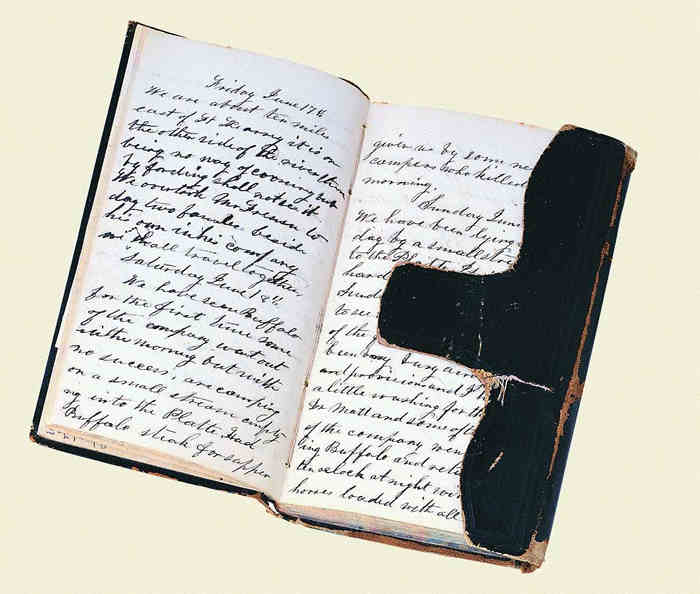 Friday June 17th
We are about ten miles
east of Ft Kearny it is on
the other side of the river there
being no way of crossing but
by fording shall not see it
We overtook Mr to
day two families beside
his own in his company
will travel together
Saturday June 18th
We have seen Buffalo
for the first time some
of the company went out
in the morning but with
no success, are camping
on a small stream empty
ng into the Platte Had
Buffalo steak for supper
given us by some ne
campers who killed
morning.
Sunday June
We have been lying
day by a small st
to the Platte
hand
Sund
to se
of the
been very busy airin
and provisions and I
a little washing for th
Dr Matt and some of th
of the company wen
ing Buffalo and retu
ten oclock at night wi
horses loaded with all